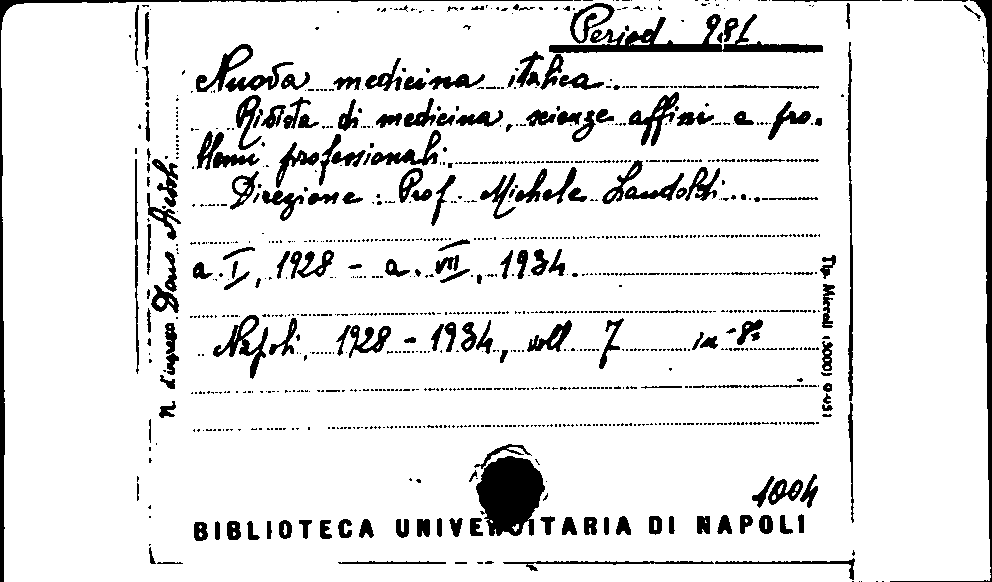 Period. 981
Nuova medicina italica.
Rivista di medicina, scienze affini e pro-
blemi professionali.
Direzione: Prof. Michele Landolfi...
a. I, 1928 - a. VII, 1934.
Napoli, 1928 - 1934, voll. 7 in-8°
N. d'ingresso Dono
1004
BIBLIOTECA UNIVERSITARIA DI NAPOLI